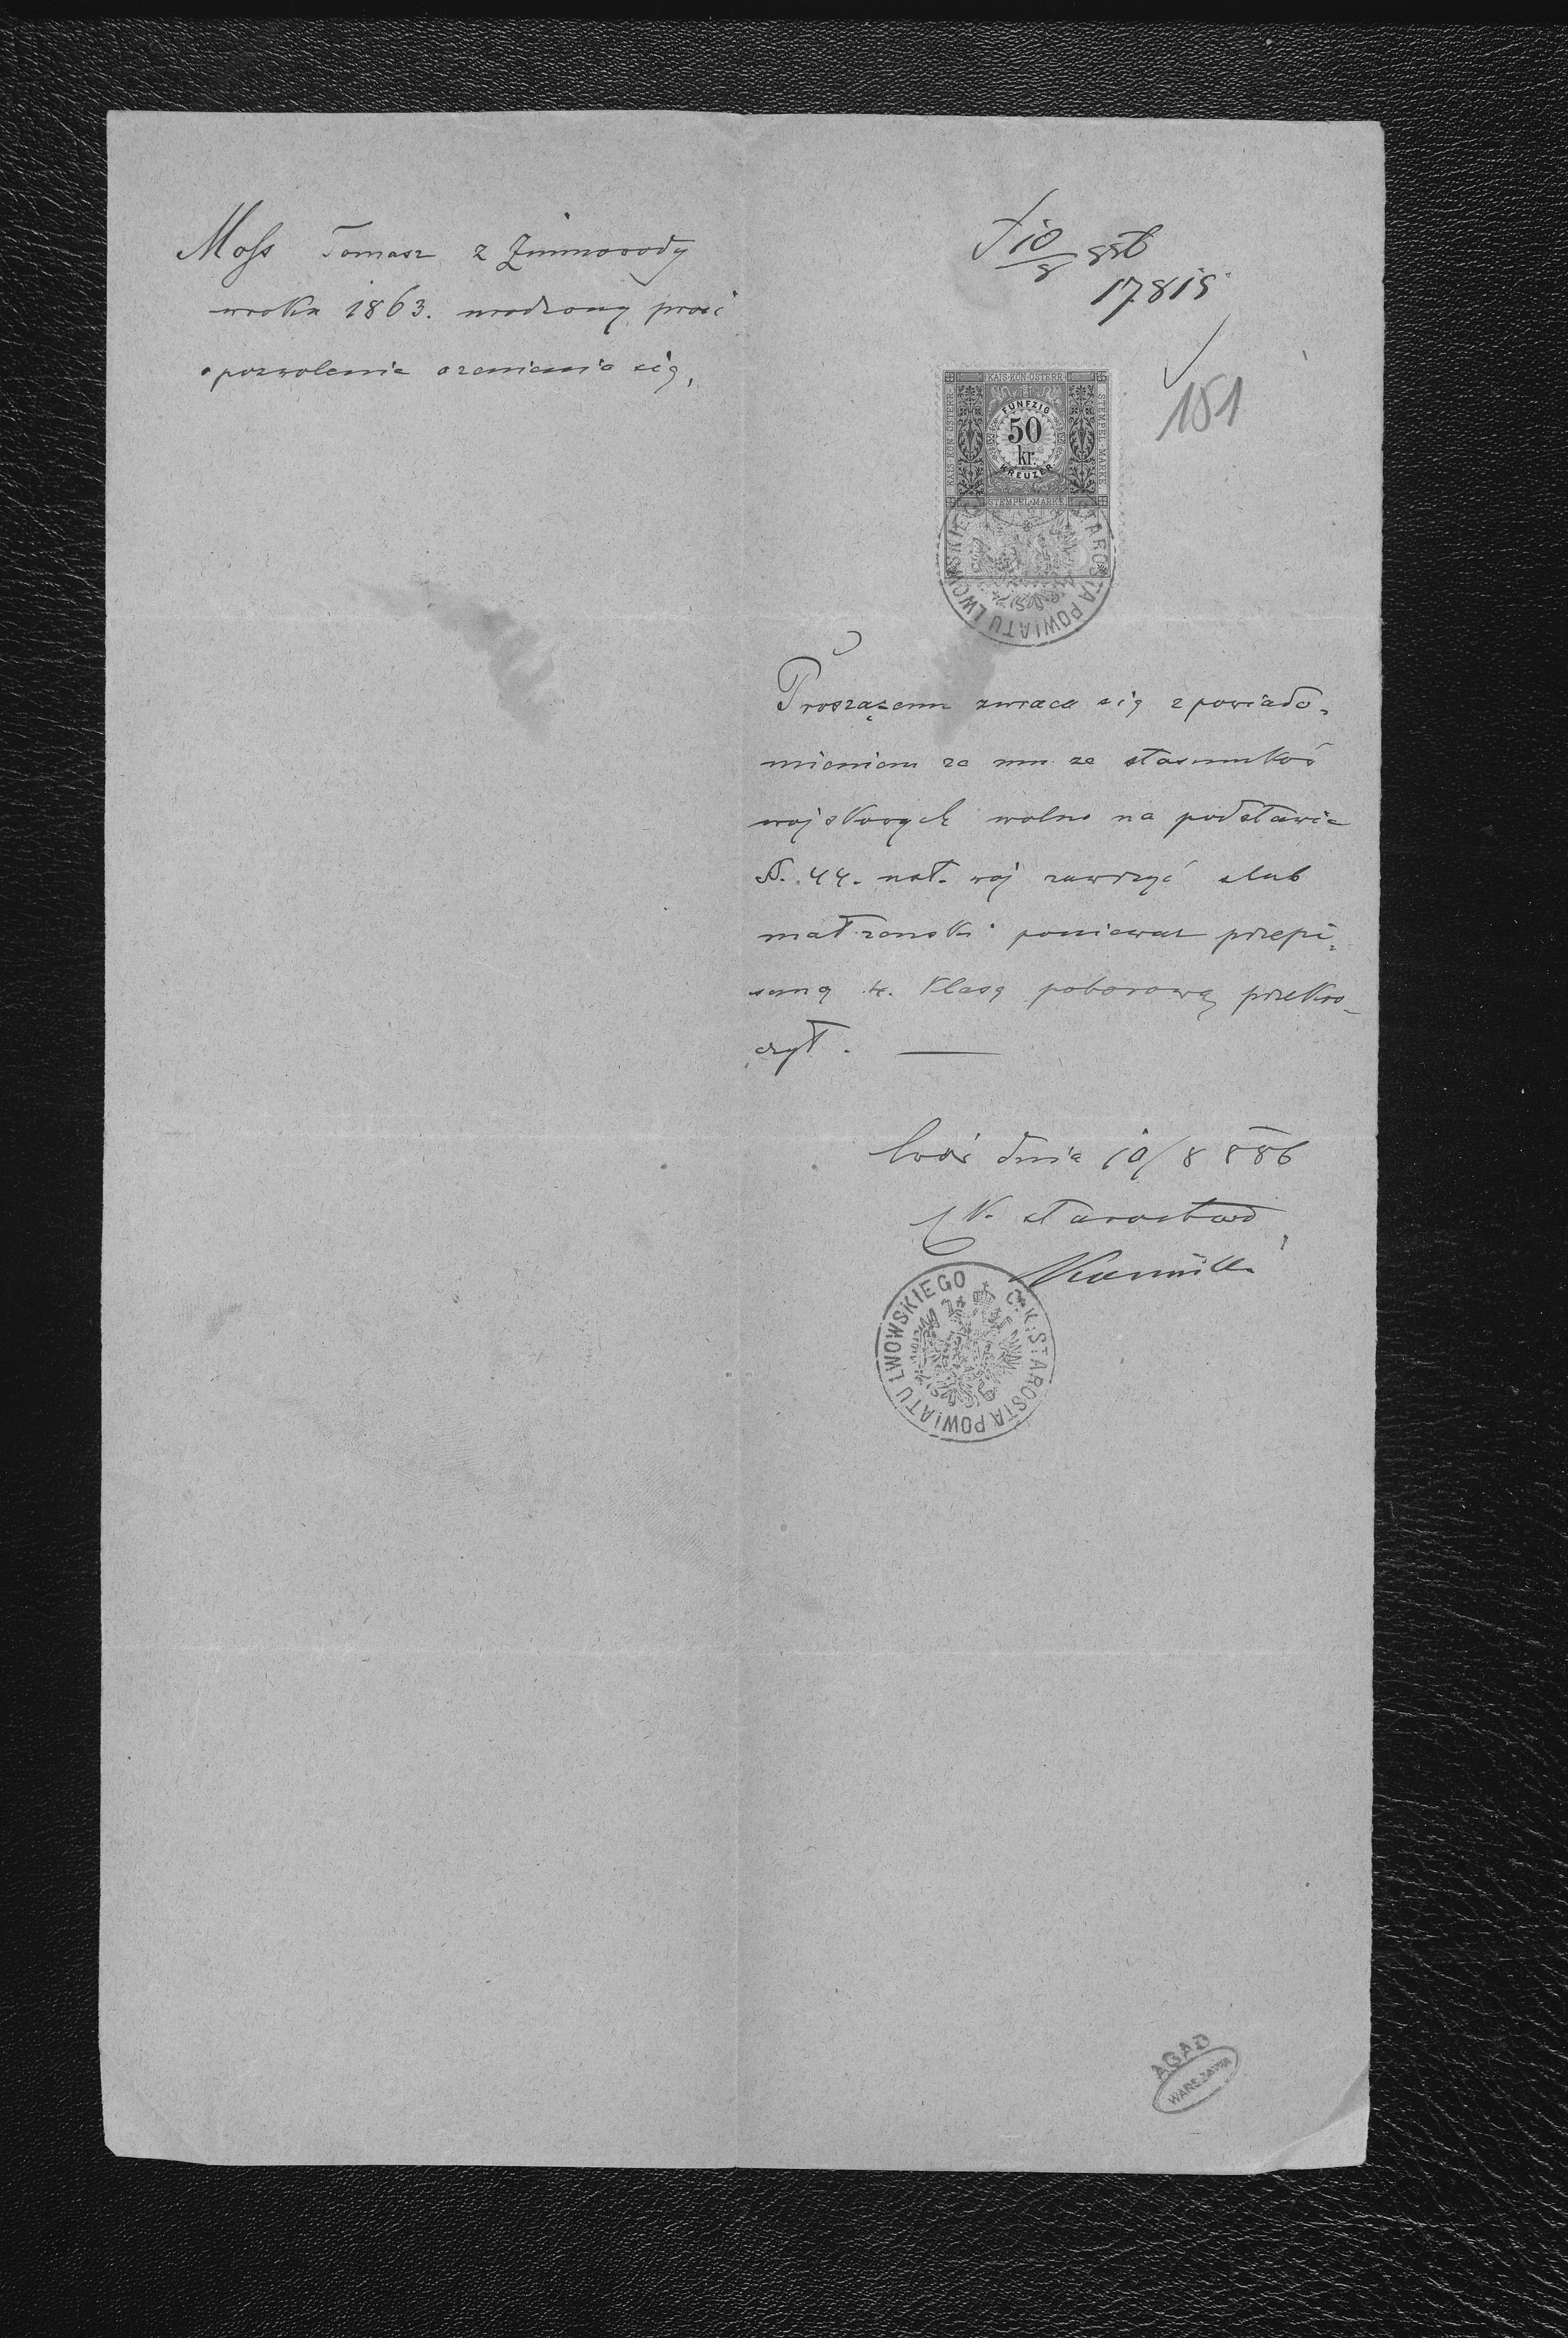 Moſs Tomasz z Zimnowody
w roku 1863. urodzony prosi
o pozwolenie ozenienia się,
10/8 886
17815
151
KAIS. KÖN. ÖSTERR.
KAIS. KÖN. ÖSTERR.
STEMPEL-MARKE
FÜNFZIG
50
kr.
KREUZER
STEMPEL-MARKE
STAROSTA POWIATU LWOWSKIEGO
Proszącemu zwraca się z powiado-
mieniem ze mu ze stosunków
wojskowych wolno na podstawie
§. 44. ust. woj zawrzyć slub
małzenski poniewaz przepi-
saną 4. klasę poborową przekro-
czył.
Lwów dnia 10/8 886
C. K. starostwo
C. K. STAROSTA POWIATU LWOWSKIEGO
AGAD
WARSZAWA